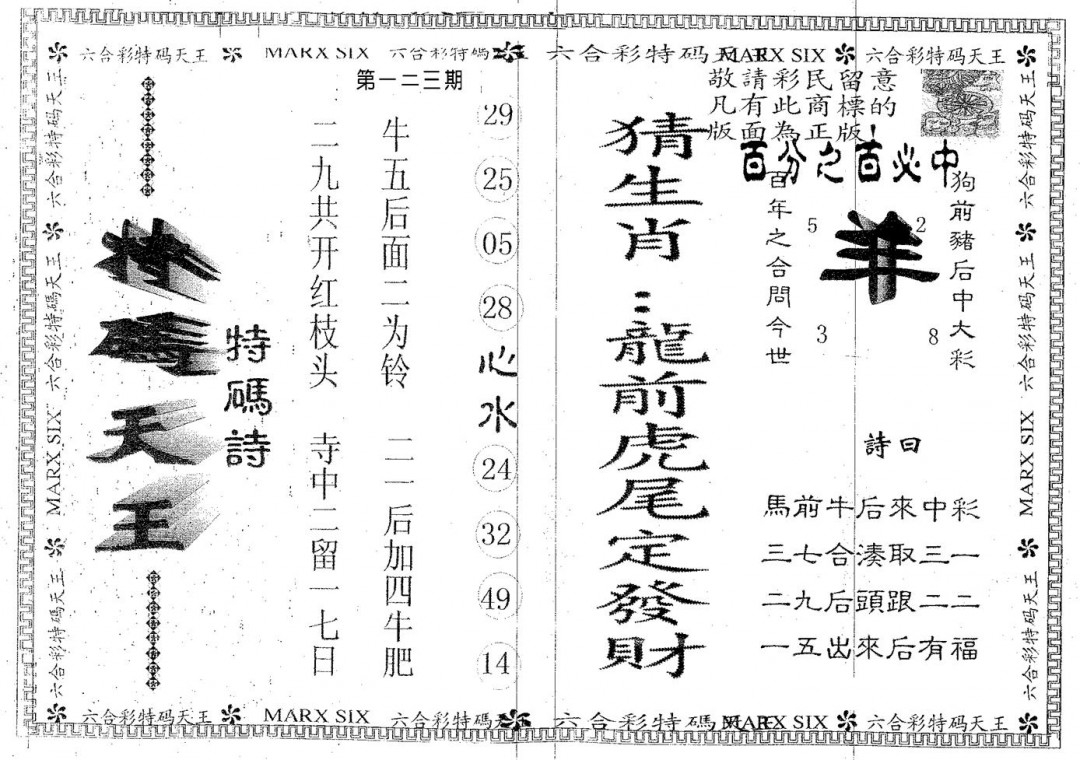 六合彩特码天王 MARX SIX 六合彩特碼天王 六合彩特码天王 MARX SIX 六合彩特码天王
第一二三期
敬請彩民留意
凡有此商標的
版面為正版!
百分之百必中
狗前豬后中大彩
羊
5 2
3 8
百年之合問今世
詩曰
馬前牛后來中彩
三七合湊取三一
二九后頭跟二二
一五出來后有福
猜生肖:龍前虎尾定發財
29 25 05 28 心水 24 32 49 14
牛五后面二为铃 二一后加四牛肥
二九共开红枝头 寺中二留一七日
特碼詩
特碼天王
六合彩特码天王 六合彩特碼天王 MARX SIX 六合彩特码天王
六合彩特码天王 六合彩特码天王 MARX SIX 六合彩特码天王
六合彩特码天王 MARX SIX 六合彩特碼天王 六合彩特碼天王 MARX SIX 六合彩特码天王